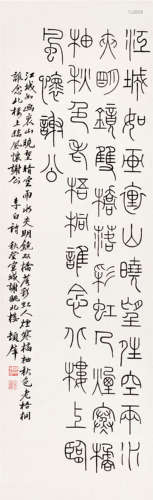 江城如畫裏山曉望晴空兩水
夾明鏡雙橋落彩虹人煙寒橘
柚秋色老梧桐誰念北樓上臨
風懷謝公
江城如画裏山晚望晴空兩水夾明鏡雙橋落彩虹人煙寒橘柚秋色老梧桐
誰念北樓上臨風懷謝公 李白詩 秋登宣城謝朓北樓